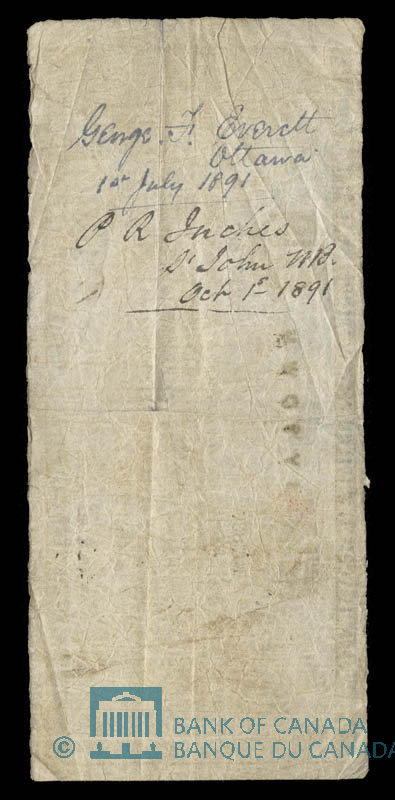 George. F. Everett
Ottawa
1st July 1891
P R Inches
St John NB.
Oct 1st 1891
© BANK OF CANADA
BANQUE DU CANADA